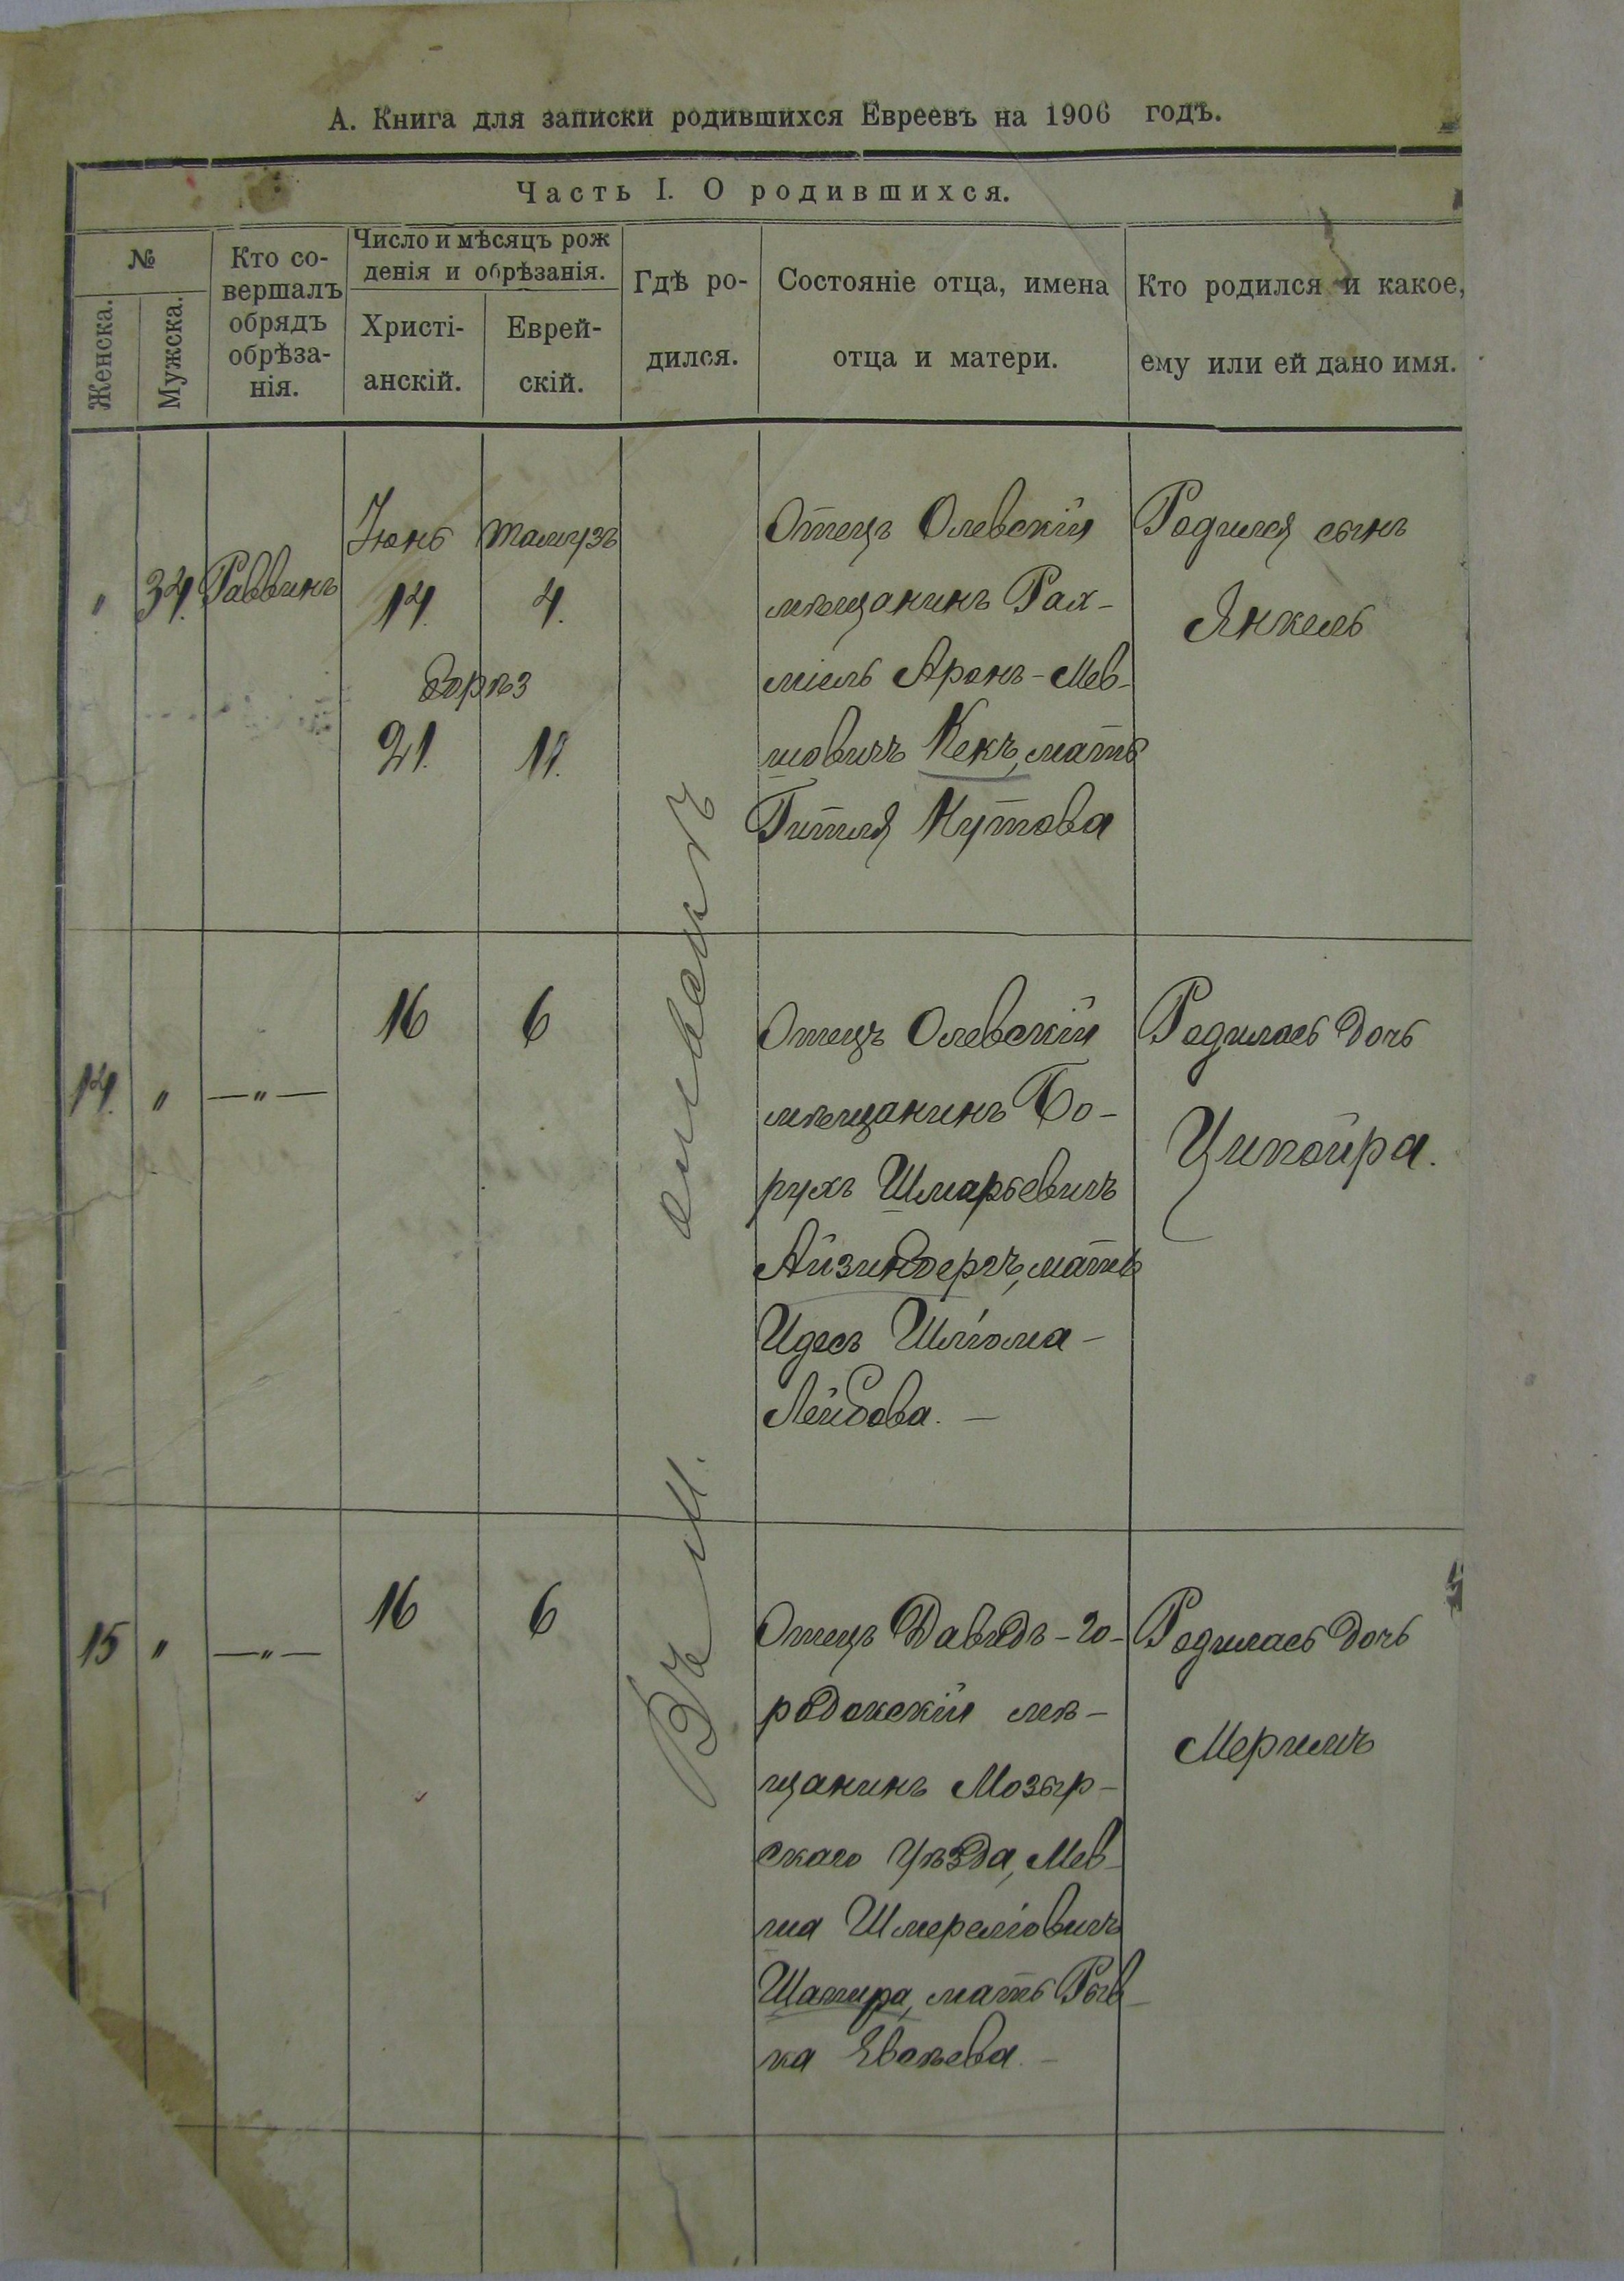 А. Книга для записки родившихся Евреевъ на 1906 годъ.
Часть I. О родившихся.
№
Женска.
Мужска.
Кто со-
вершалъ
обрядъ
обрѣза-
нія.
Число и мѣсяцъ рож
денія и обрѣзанія.
Христі-
анскій.
Еврей-
скій.
Гдѣ ро-
дился.
Состояніе отца, имена
отца и матери.
Кто родился и какое,
ему или ей дано имя.
" 34. Раввинъ
Іюнь Тамузъ
14. 4.
Обрѣз
21. 11.
Отецъ Олевскій
мѣщанинъ Рах-
міель Аронъ-Мев-
шовичъ Кекъ, мать
Гитля Нутова
Родился сынъ
Янкель
Въ м. Олевскѣ
14. " —"—
16 6
Отецъ Олевскій
мѣщанинъ Бо-
рухъ Шмарьевичъ
Айзинбергъ, мать
Идесъ Шліома-
Лейбова. —
Родилась дочь
Ципойра.
15 " —"—
16 6
Отецъ Давидъ-го-
родокскій мѣ-
щанинъ Мозыр-
скаго уѣзда, Мев-
ша Шмерліовичъ
Шапира, мать Рыв-
ка Евсѣева. —
Родилась дочь
Меримъ